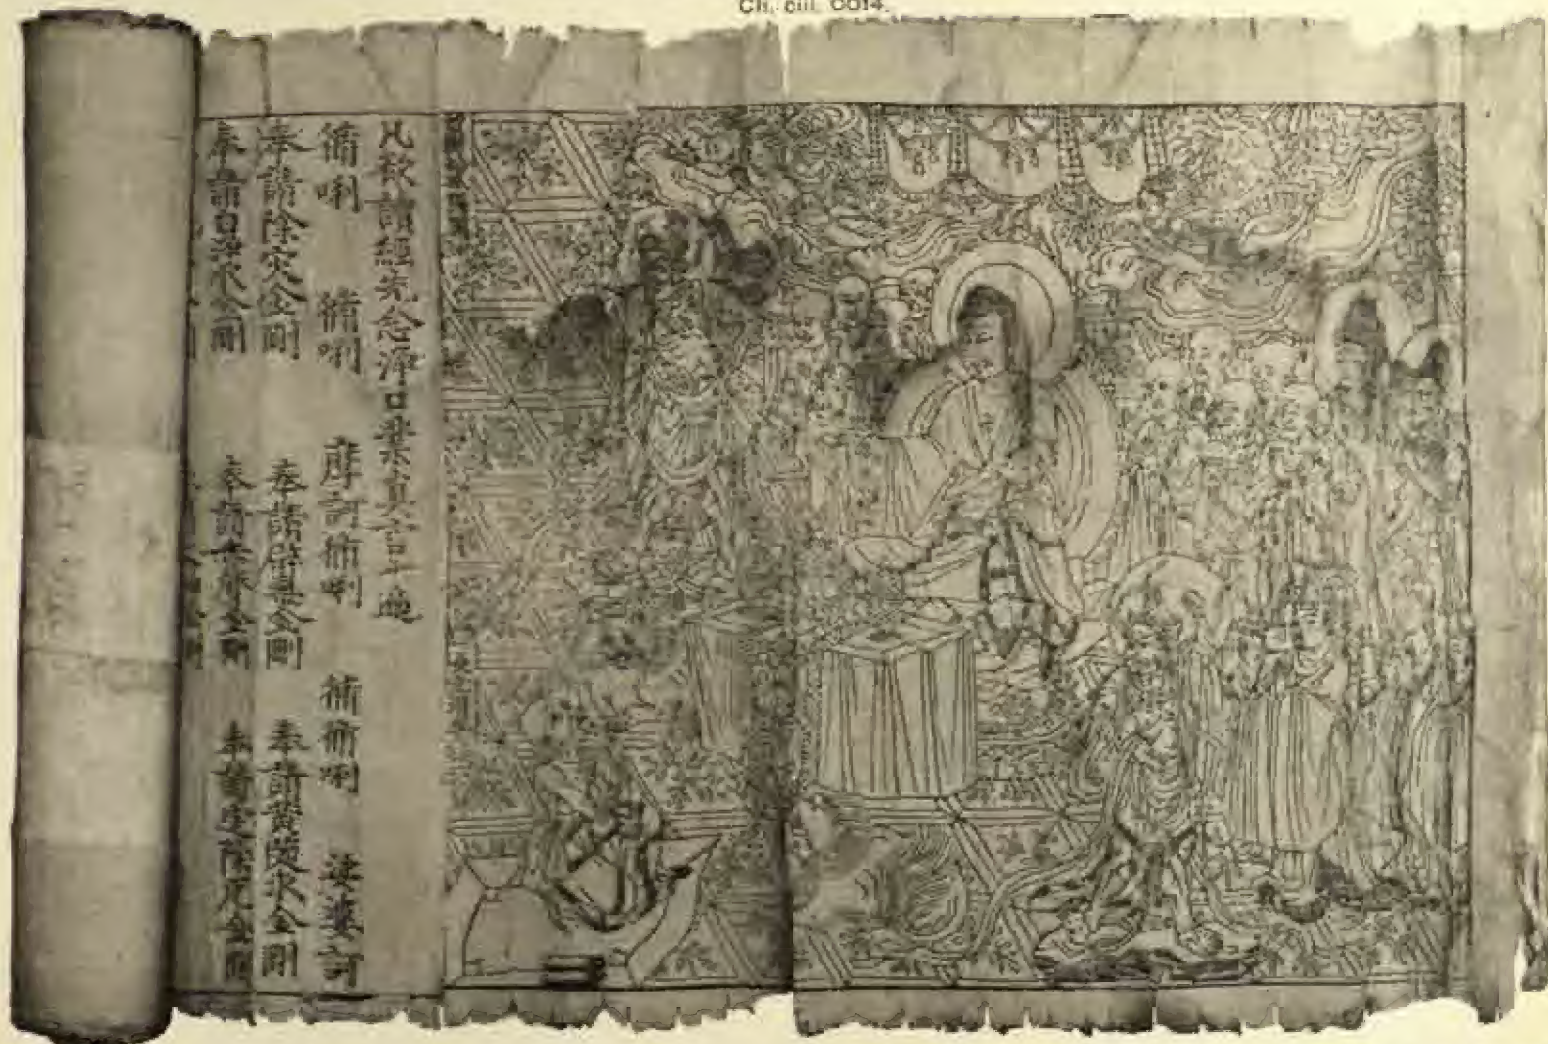 Ch. ciii. 0014.
凡欲讀經先念淨口業真言一遍
脩唎 脩唎 摩訶脩唎 脩脩唎 娑婆訶
奉請除灾金剛 奉請辟毒金剛 奉請黃隨求金剛
奉請白淨水金剛 奉請赤聲金剛 奉請定除厄金剛